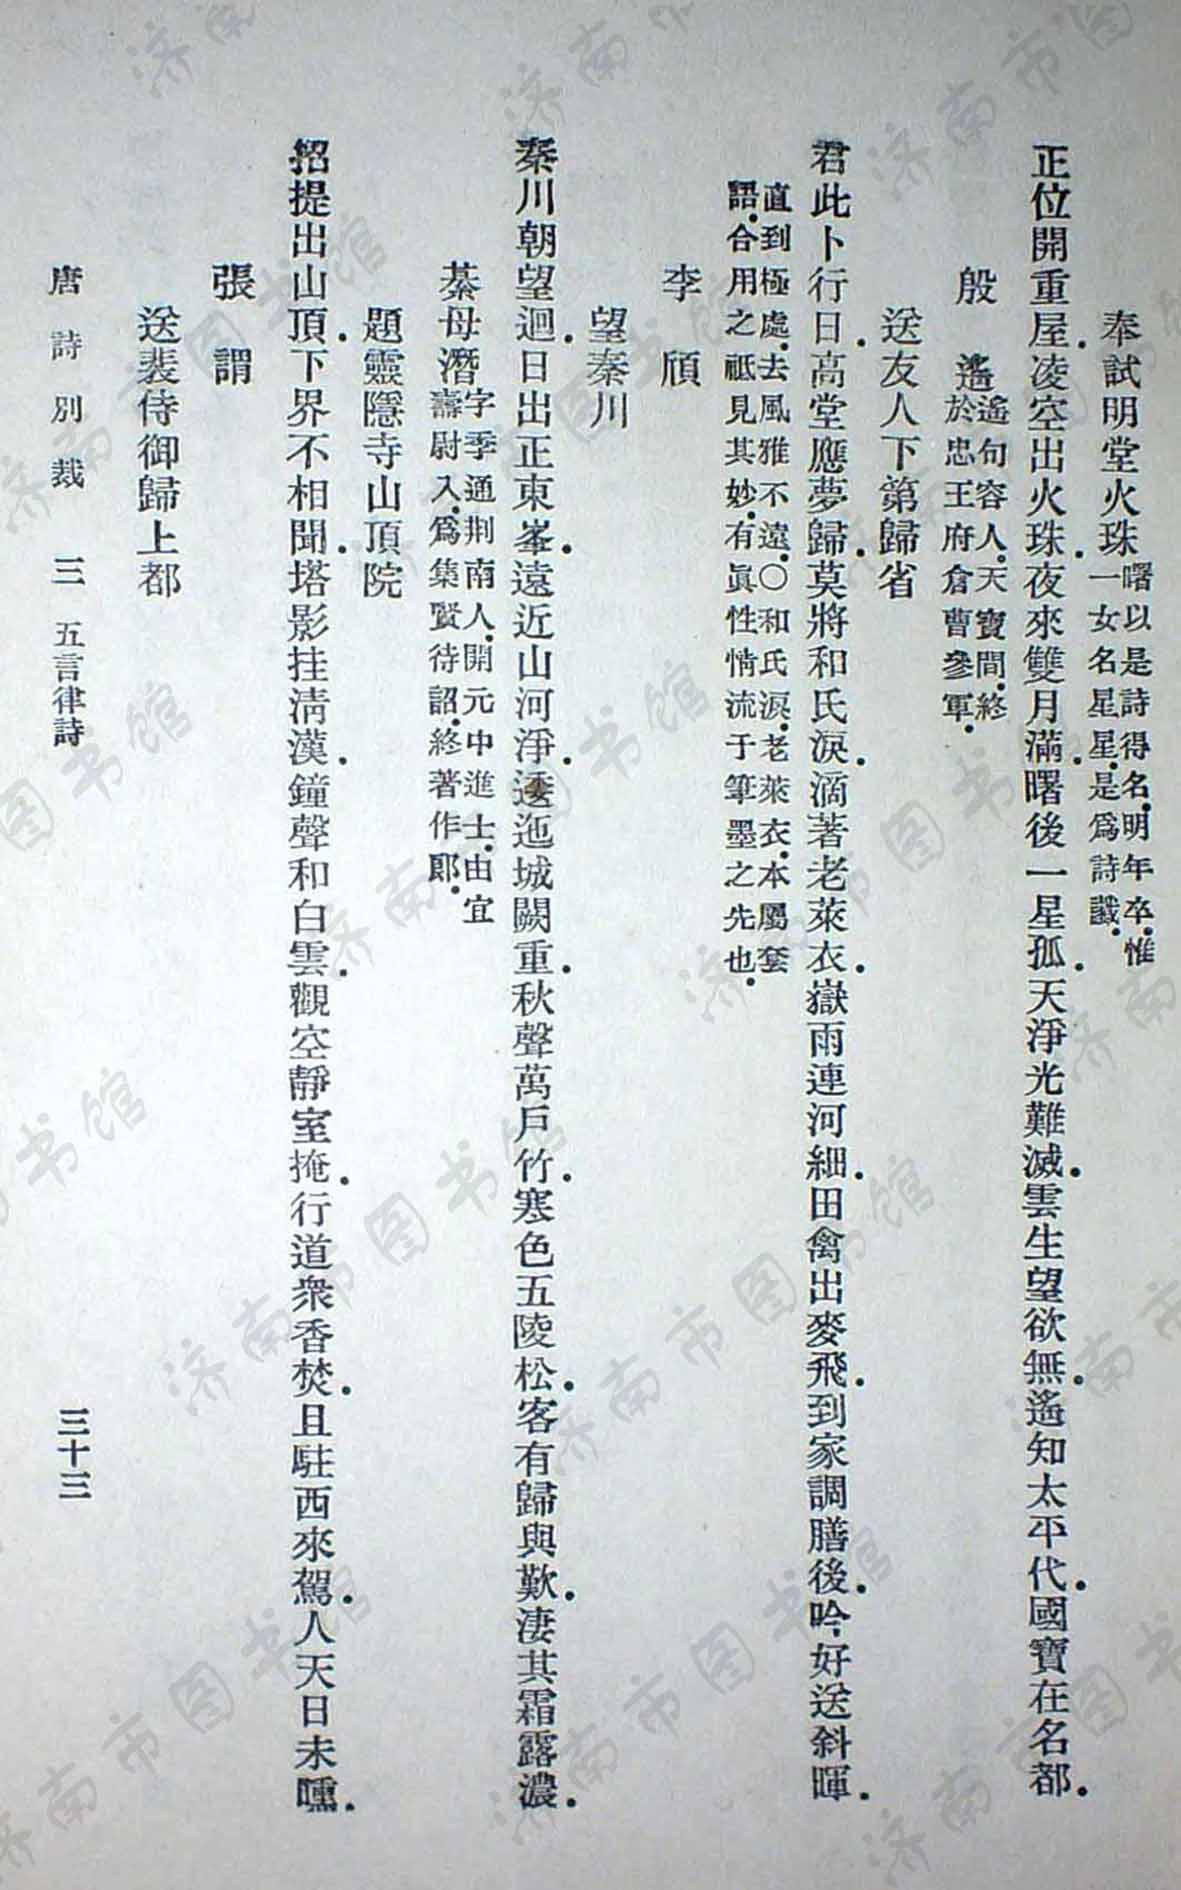 奉試明堂火珠 曙以是詩得名.明年卒.惟
一女名星星.是爲詩讖.
正位開重屋.凌空出火珠.夜來雙月滿.曙後一星孤.天淨光難滅.雲生望欲無.遙知太平代.國寶在名都.
殷遙 遙句容人.天寶間.終
於忠王府倉曹參軍.
送友人下第歸省
君此卜行日.高堂應夢歸.莫將和氏淚.滴著老萊衣.嶽雨連河細.田禽出麥飛.到家調膳後.吟好送斜暉.
直到極處.去風雅不遠.〇和氏淚.老萊衣.本屬套
語.合用之祗見其妙.有眞性情流于筆墨之先也.
李頎
望秦川
秦川朝望迥.日出正東峯.遠近山河淨.逶迤城闕重.秋聲萬戶竹.寒色五陵松.客有歸與歎.淒其霜露濃.
綦母潛 字季通.荆南人.開元中進士.由宜
壽尉入.爲集賢待詔.終著作郎.
題靈隱寺山頂院
招提出山頂.下界不相聞.塔影挂淸漢.鐘聲和白雲.觀空靜室掩.行道衆香焚.且駐西來駕.人天日未曛.
張謂
送裴侍御歸上都
唐詩別裁 三 五言律詩 三十三
济南市图书馆